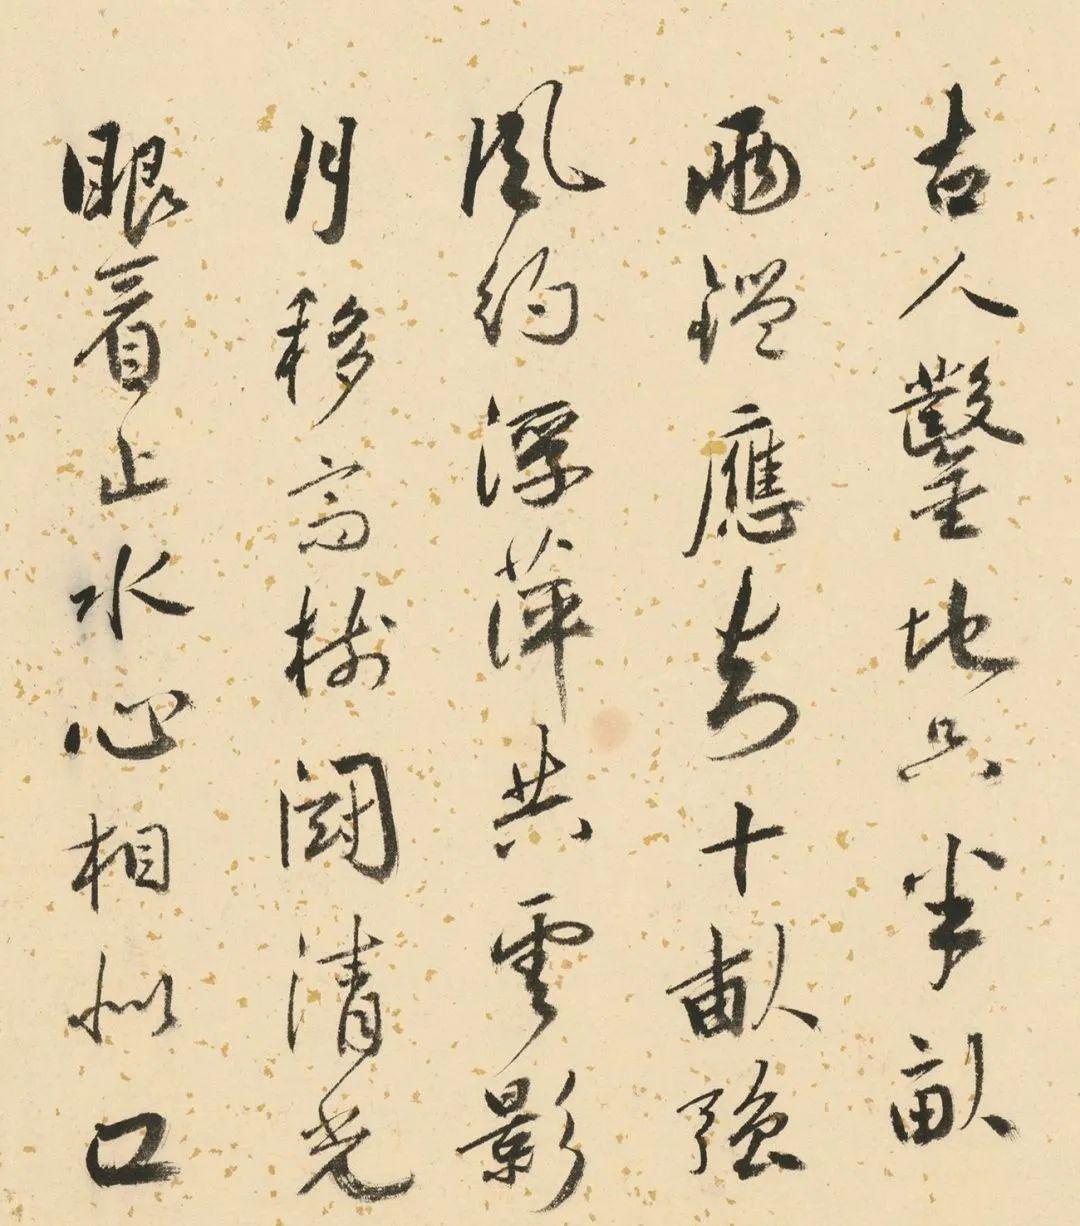 古人鑿地只半畝
兩鑑應十畝強
風約浮萍共雲影
月移高樹鬪清光
眼看止水心相似口